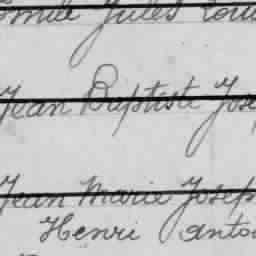 Emile Jules Loui
Jean Baptiste Jose
Jean Marie Joseph
Henri Anto